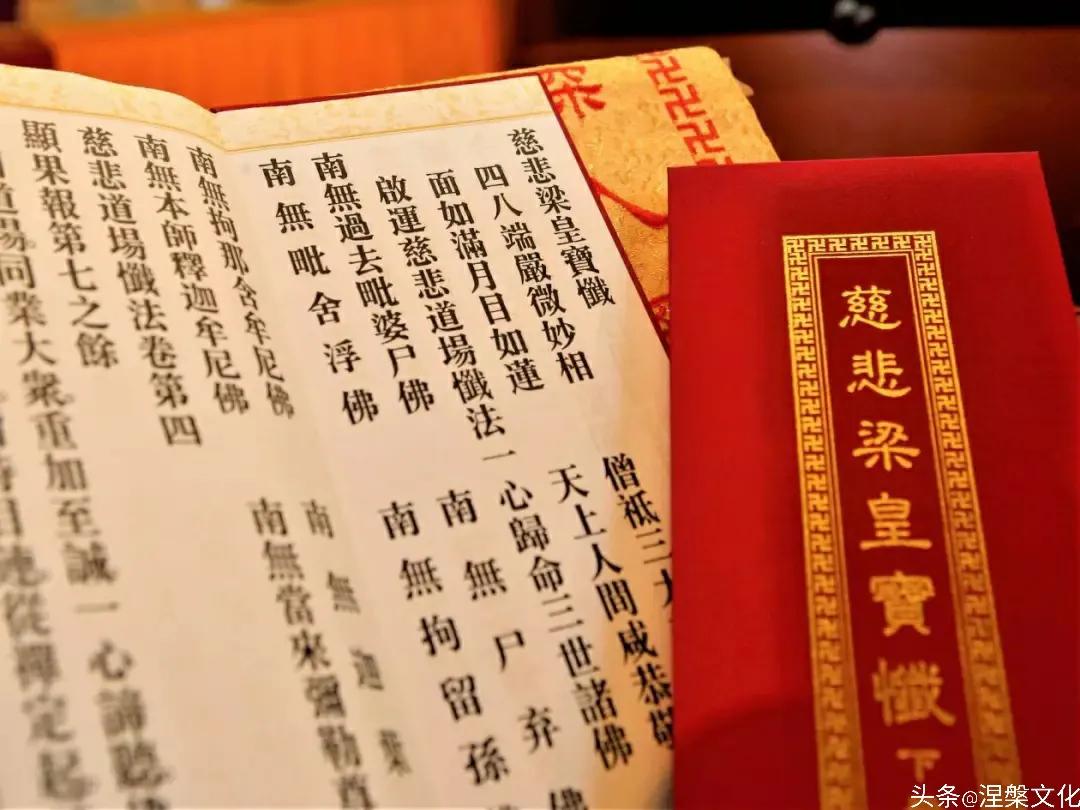 慈悲梁皇寶懺
四八端嚴微妙相 僧祇三大
面如滿月目如蓮 天上人間咸恭敬
啟運慈悲道場懺法一心歸命三世諸佛
南無過去毗婆尸佛 南無尸弃佛
南無毗舍浮佛 南無拘留孫
南無拘那含牟尼佛 南無迦葉
南無本師釋迦牟尼佛 南無當來彌勒尊
慈悲道場懺法卷第四
顯果報第七之餘
日道場同業大衆重加至誠一心諦聽
時目連從禪定起
慈悲梁皇寶懺 下
头条@涅盤文化